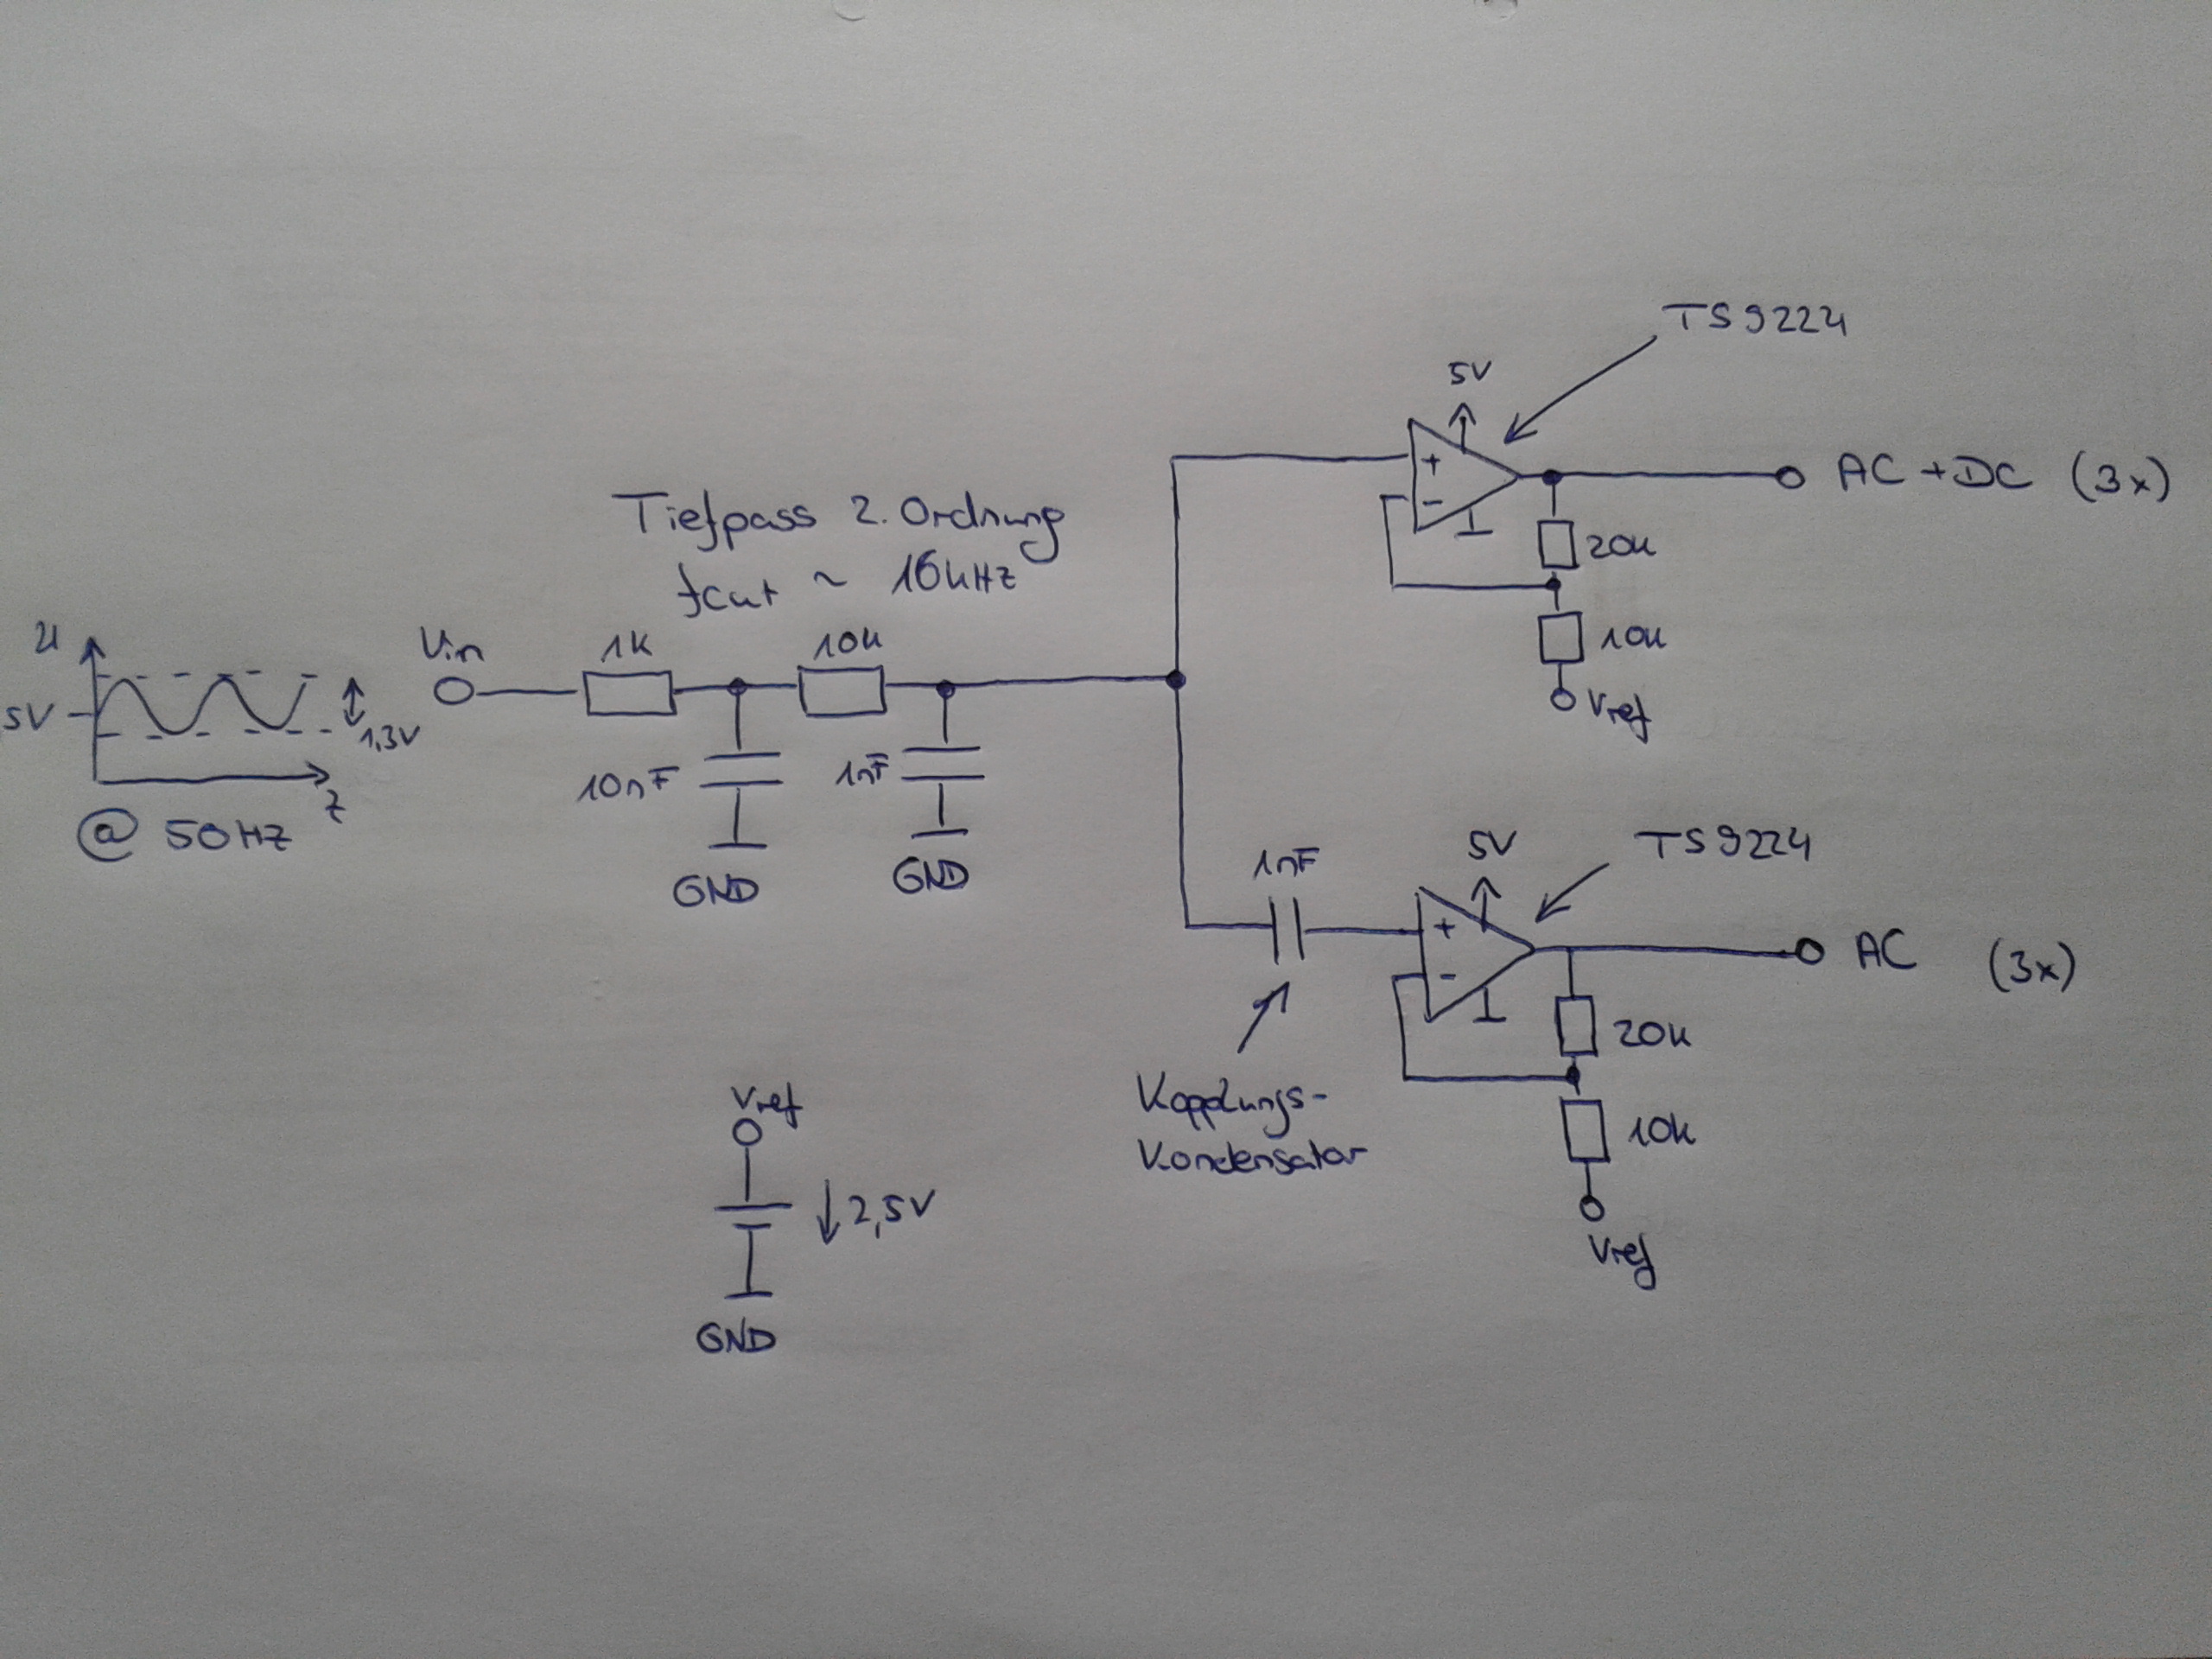 TS9224
5V
+
-
AC+DC (3x)
20k
10k
Vref
Tiefpass 2. Ordnung
fcut ~ 16kHz
U
5V
1,3V
t
@ 50Hz
Vin
1K
10k
10nF
1nF
GND
GND
TS9224
5V
1nF
+
-
AC (3x)
20k
10k
Vref
Kopplungs-
Kondensator
Vref
2,5V
GND